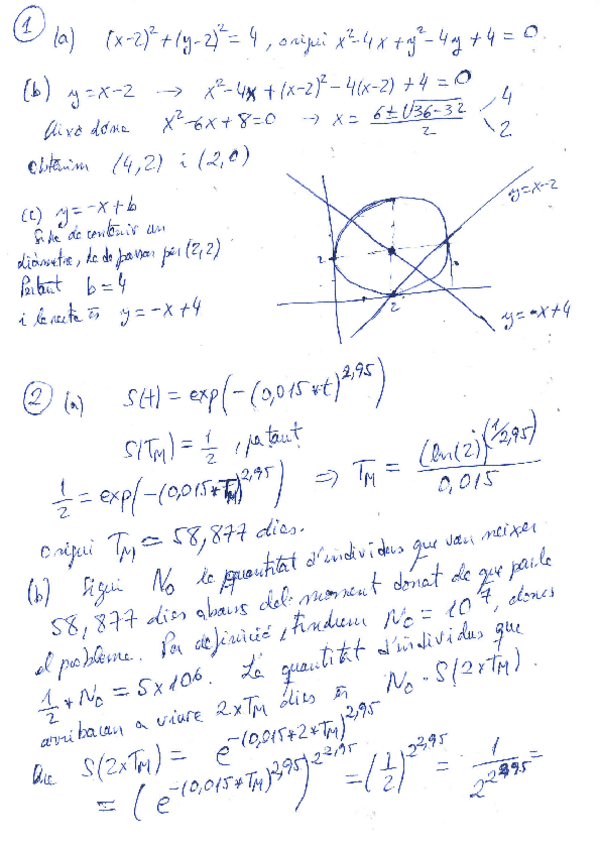 1 (a) (x-2)²+(y-2)²=4, o sigui x²-4x+y²-4y+4=0.
(b) y=x-2 → x²-4x+(x-2)²-4(x-2)+4=0
Això dóna x²-6x+8=0 → x = (6±√(36-32))/2 4
2
obtenim (4,2) i (2,0)
(c) y=-x+b
Si ha de contenir un
diàmetre, ha de passar per (2,2)
Per tant b=4
i la recta és y=-x+4
y=x-2
2
2
y=-x+4
2 (a) S(t)=exp(-(0,015*t)^2,95)
S(T_M)=1/2, per tant
1/2=exp(-(0,015*T_M)^2,95) ⇒ T_M = (ln(2))^(1/2,95) / 0,015
o sigui T_M = 58,877 dies.
(b) Sigui N₀ la quantitat d'individus que van néixer
58,877 dies abans del moment donat de que parla
el problema. Per definició, tindrem N₀ = 10⁷, doncs
1/2*N₀ = 5x10⁶. La quantitat d'individus que
arribaran a viure 2xT_M dies és N₀·S(2xT_M).
Que S(2xT_M) = e^-(0,015*2*T_M)^2,95
= (e^-(0,015*T_M)^2,95)^2^2,95 = (1/2)^2^2,95 = 1/2^2^2,95 =